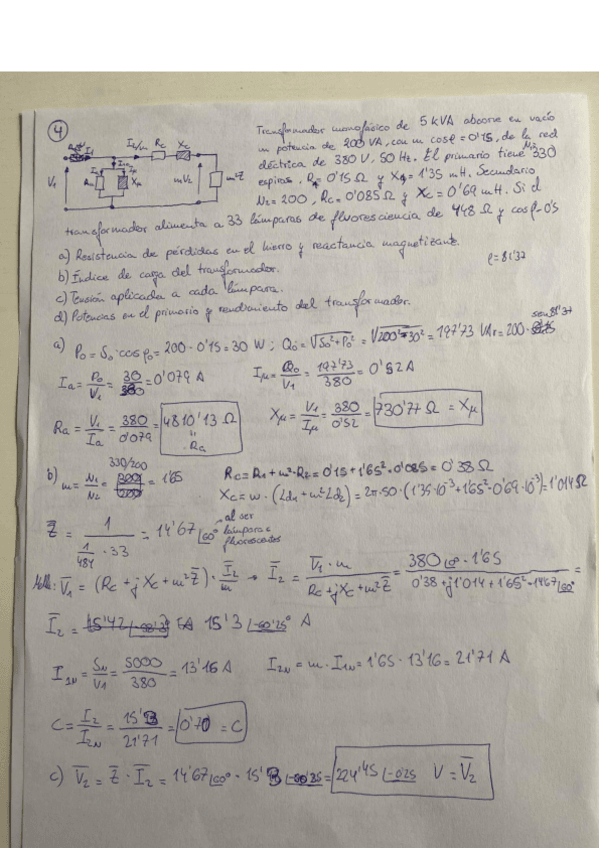 4
I₂/m Rc Xc
V₁ Xμ mV₂ m²Z̄
Transformador monofásico de 5 kVA absorbe en vacío
un potencia de 200 VA, con un cosφ = 0'15, de la red
eléctrica de 380 V, 50 Hz. El primario tiene N₁=330
espiras, R₁= 0'15 Ω y X₁= 1'35 mH. Secundario
N₂= 200, R₂= 0'085 Ω y X₂ = 0'69 mH. Si el
transformador alimenta a 33 lámparas de fluoresciencia de 448 Ω y cosφ=0'5
a) Resistencia de pérdidas en el hierro y reactancia magnetizante.
b) Índice de carga del transformador. φ=81'37
c) Tensión aplicada a cada lámpara.
d) Potencias en el primario y rendimiento del transformador.
a) P₀ = S₀ · cosφ₀ = 200 · 0'15 = 30 W ; Q₀ = √S₀²+P₀² = √200²-30² = 197'73 VAr = 200 · sen81'37
Ia = P₀/V₁ = 30/380 = 0'079 A Iμ = Q₀/V₁ = 197'73/380 = 0'52 A
Ra = V₁/Ia = 380/0'079 = 4810'13 Ω = Ra Xμ = V₁/Iμ = 380/0'52 = 730'77 Ω = Xμ
b) m = N₁/N₂ = 330/200 = 1'65 Rc = R₁ + m² · R₂ = 0'15 + 1'65² · 0'085 = 0'38 Ω
Xc = w · (Ld₁ + m² Ld₂) = 2π · 50 · (1'35·10⁻³ + 1'65² · 0'69·10⁻³) = 1'014 Ω
Z̄ = 1/(1/484 · 33) = 14'67 ∠60° al ser lámparas fluorescentes
Malla: V̄₁ = (Rc + jXc + m²Z̄) · Ī₂/m → Ī₂ = V̄₁ · m/(Rc + jXc + m²Z̄) = 380∠0° · 1'65/(0'38 + j1'014 + 1'65² · 14'67∠60°) =
Ī₂ = 15'3 ∠-60'25° A
I₁N = SN/V₁ = 5000/380 = 13'16 A I₂N = m · I₁N = 1'65 · 13'16 = 21'71 A
C = I₂/I₂N = 15'3/21'71 = 0'70 = C
c) V̄₂ = Z̄ · Ī₂ = 14'67∠60° · 15'3 ∠-60'25 = 224'45 ∠-0'25 V = V̄₂